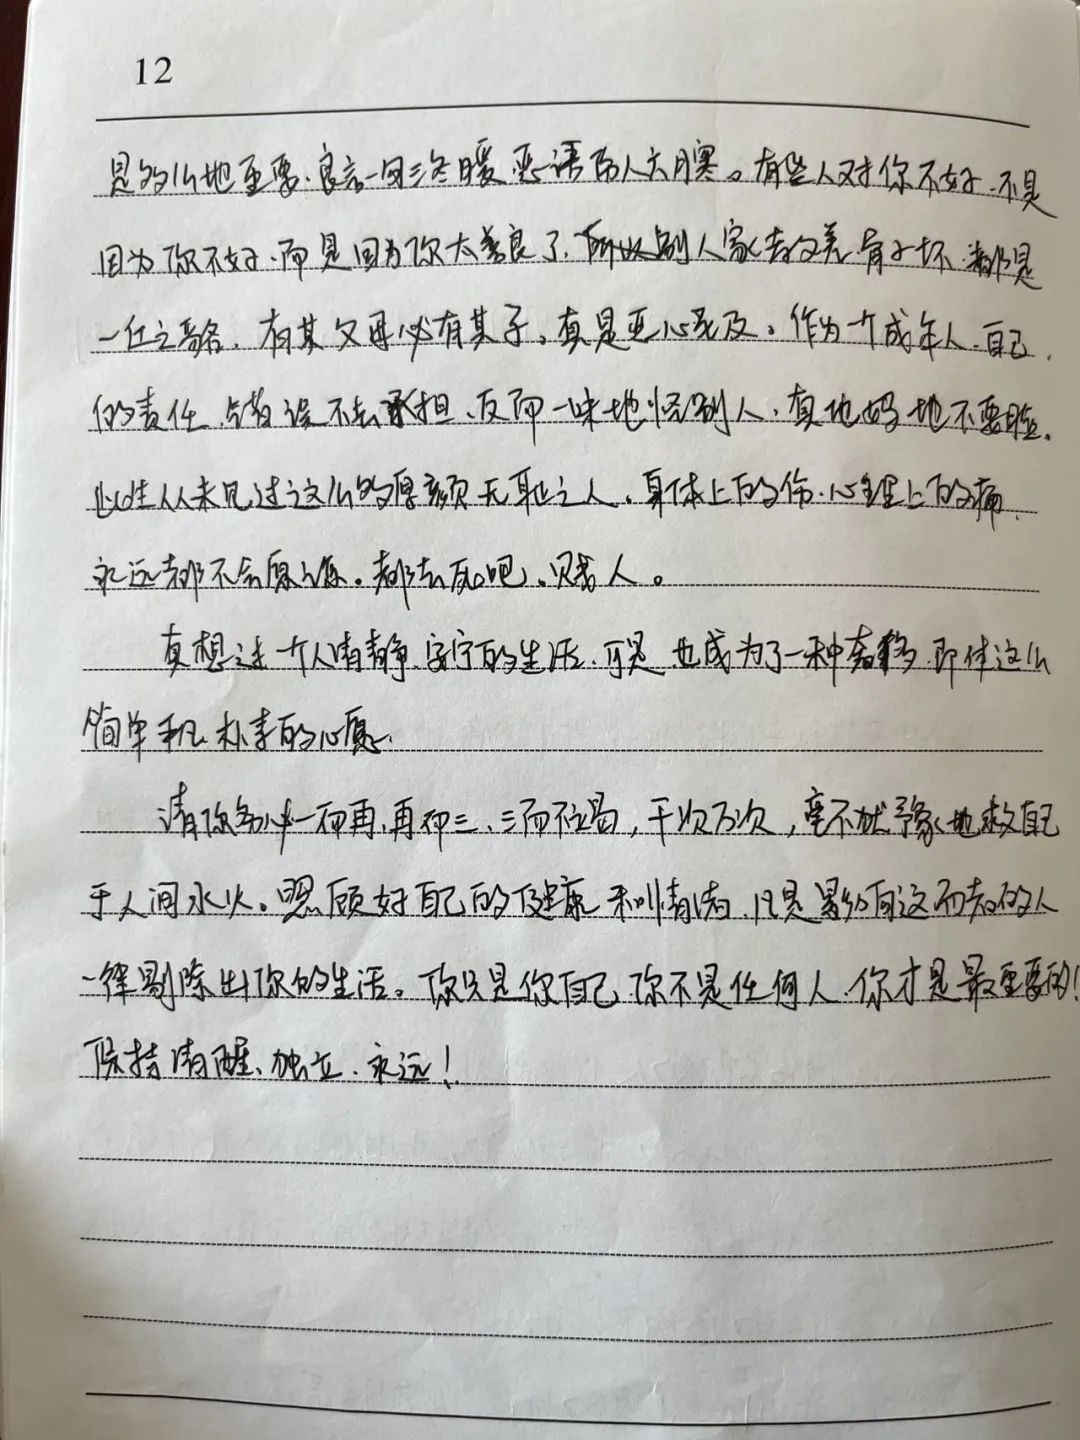 12
是多么地重要.良言一句三冬暖.恶语伤人六月寒。有些人对你不好.不是
因为你不好.而是因为你太善良了.所以别人家去又差.骨子坏.都是
一丘之貉.有其父母必有其子。真是恶心死及。作为一个成年人.自己
的责任、错误不去承担、反而一味地怪别人.真他妈地不要脸。
此生从未见过这么的厚颜无耻之人。身体上的伤.心理上的痛.
永远都不会愿谅。都去死吧.贱人。
真想过一个人清静.安宁的生活.可是 也成为了一种奢移.即使这么
简单平凡.朴素的心愿.
请你务必一而再.再而三、三而不竭，千次万次，毫不犹豫地救自己
于人间水火。照顾好自己的健康和情绪.凡是影响这两者的人
一律剔除出你的生活。你只是你自己.你不是任何人.你才是最重要的!
保持清醒、独立.永远!